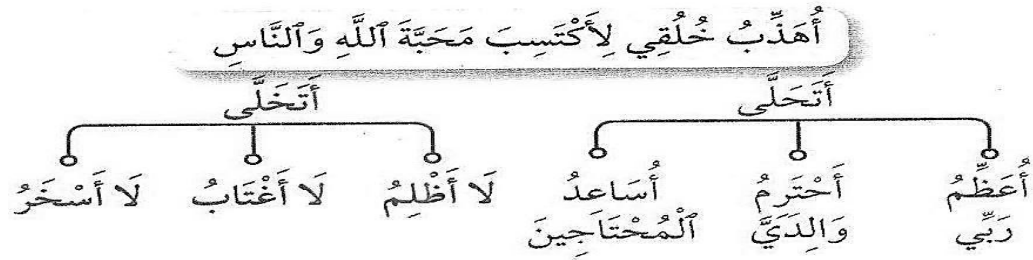 أُهَذِّبُ خُلُقِي لِأَكْتَسِبَ مَحَبَّةَ ٱللَّهِ وَٱلنَّاسِ
أَتَحَلَّى
أَتَخَلَّى
أُعَظِّمُ رَبِّي
أَحْتَرِمُ وَالِدَيَّ
أُسَاعِدُ ٱلْمُحْتَاجِينَ
لَا أَظْلِمُ
لَا أَغْتَابُ
لَا أَسْخَرُ